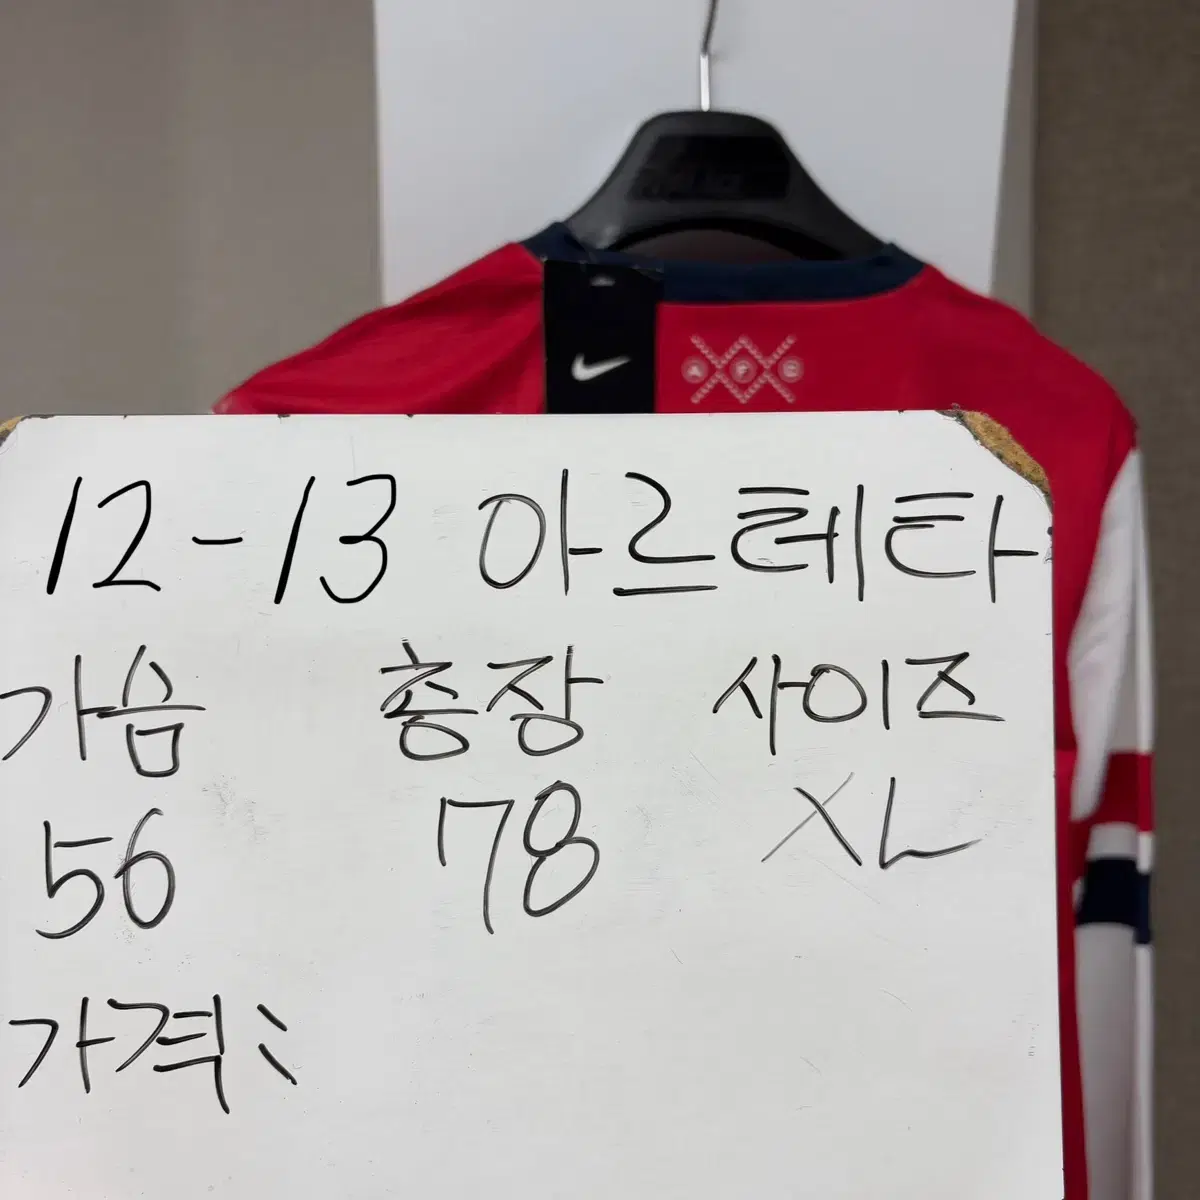 A F C
12-13 아르테타
가슴 총장 사이즈
56 78 XL
가격: